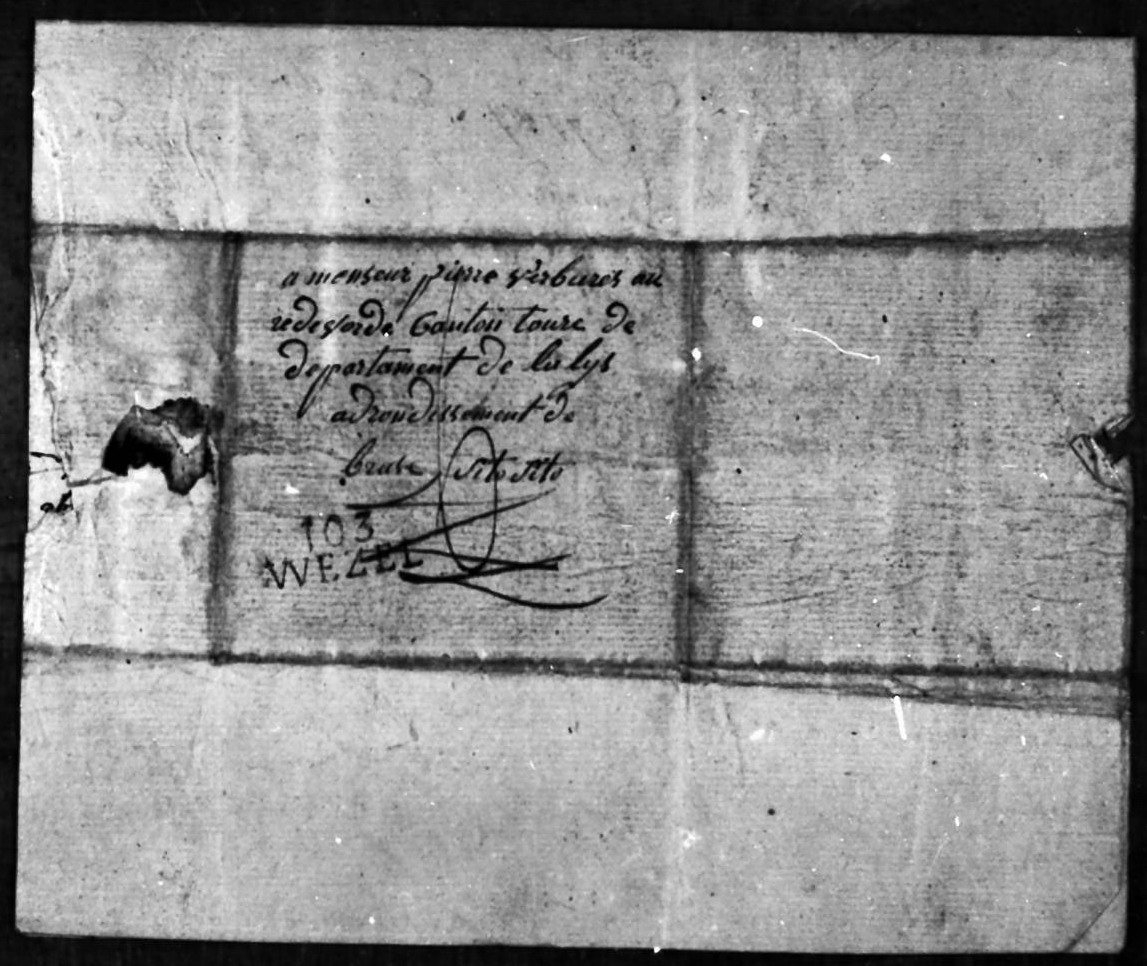 a menseur pierre verbures au
redevorde Canton tourc de
departament de la lys
adrondissement de
bruse sito sito
103
WEZEL